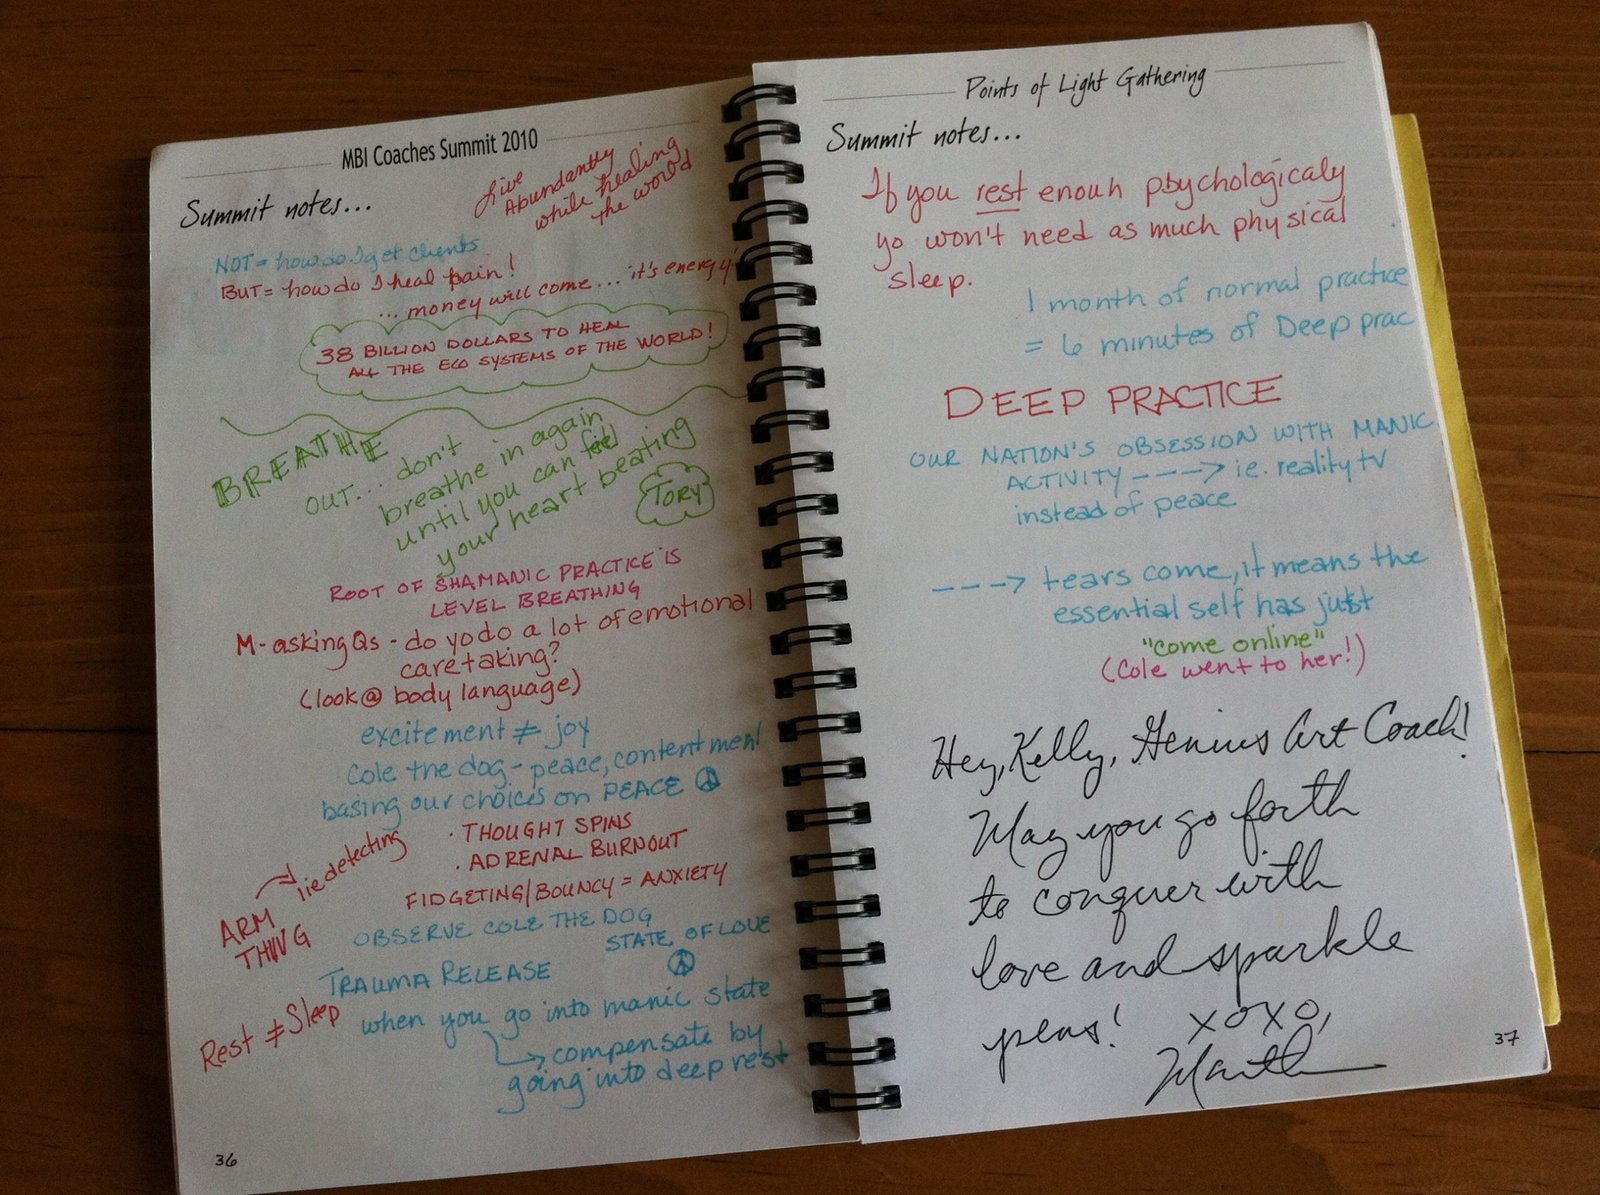 MBI Coaches Summit 2010
Summit notes...
Live
Abundantly
while healing
the world
NOT = how do I get clients
BUT = how do I heal pain!
... money will come... it's energy!
38 BILLION DOLLARS TO HEAL
ALL THE ECO SYSTEMS OF THE WORLD!
BREATHE
OUT... don't
breathe in again
until you can feel
your heart beating
TORY
ROOT OF SHAMANIC PRACTICE IS
LEVEL BREATHING
M- asking Qs - do yo do a lot of emotional
caretaking?
(look @ body language)
excitement ≠ joy
Cole the dog - peace, contentment
basing our choices on PEACE ☮
· THOUGHT SPINS
· ADRENAL BURNOUT
lie detecting
FIDGETING/BOUNCY = ANXIETY
ARM
THING
OBSERVE COLE THE DOG
STATE OF LOVE
☮
TRAUMA RELEASE
Rest ≠ Sleep
when you go into manic state
compensate by
going into deep rest
36
Points of Light Gathering
Summit notes...
If you rest enouh psychologicaly
yo won't need as much physical
sleep.
1 month of normal practice
= 6 minutes of Deep prac
DEEP PRACTICE
OUR NATION'S OBSESSION WITH MANIC
ACTIVITY ----> ie. reality tv
instead of peace
---> tears come, it means the
essential self has just
"come online"
(Cole went to her!)
Hey, Kelly, Genius Art Coach!
May you go forth
to conquer with
love and sparkle
pens! xoxo,
Martha
37